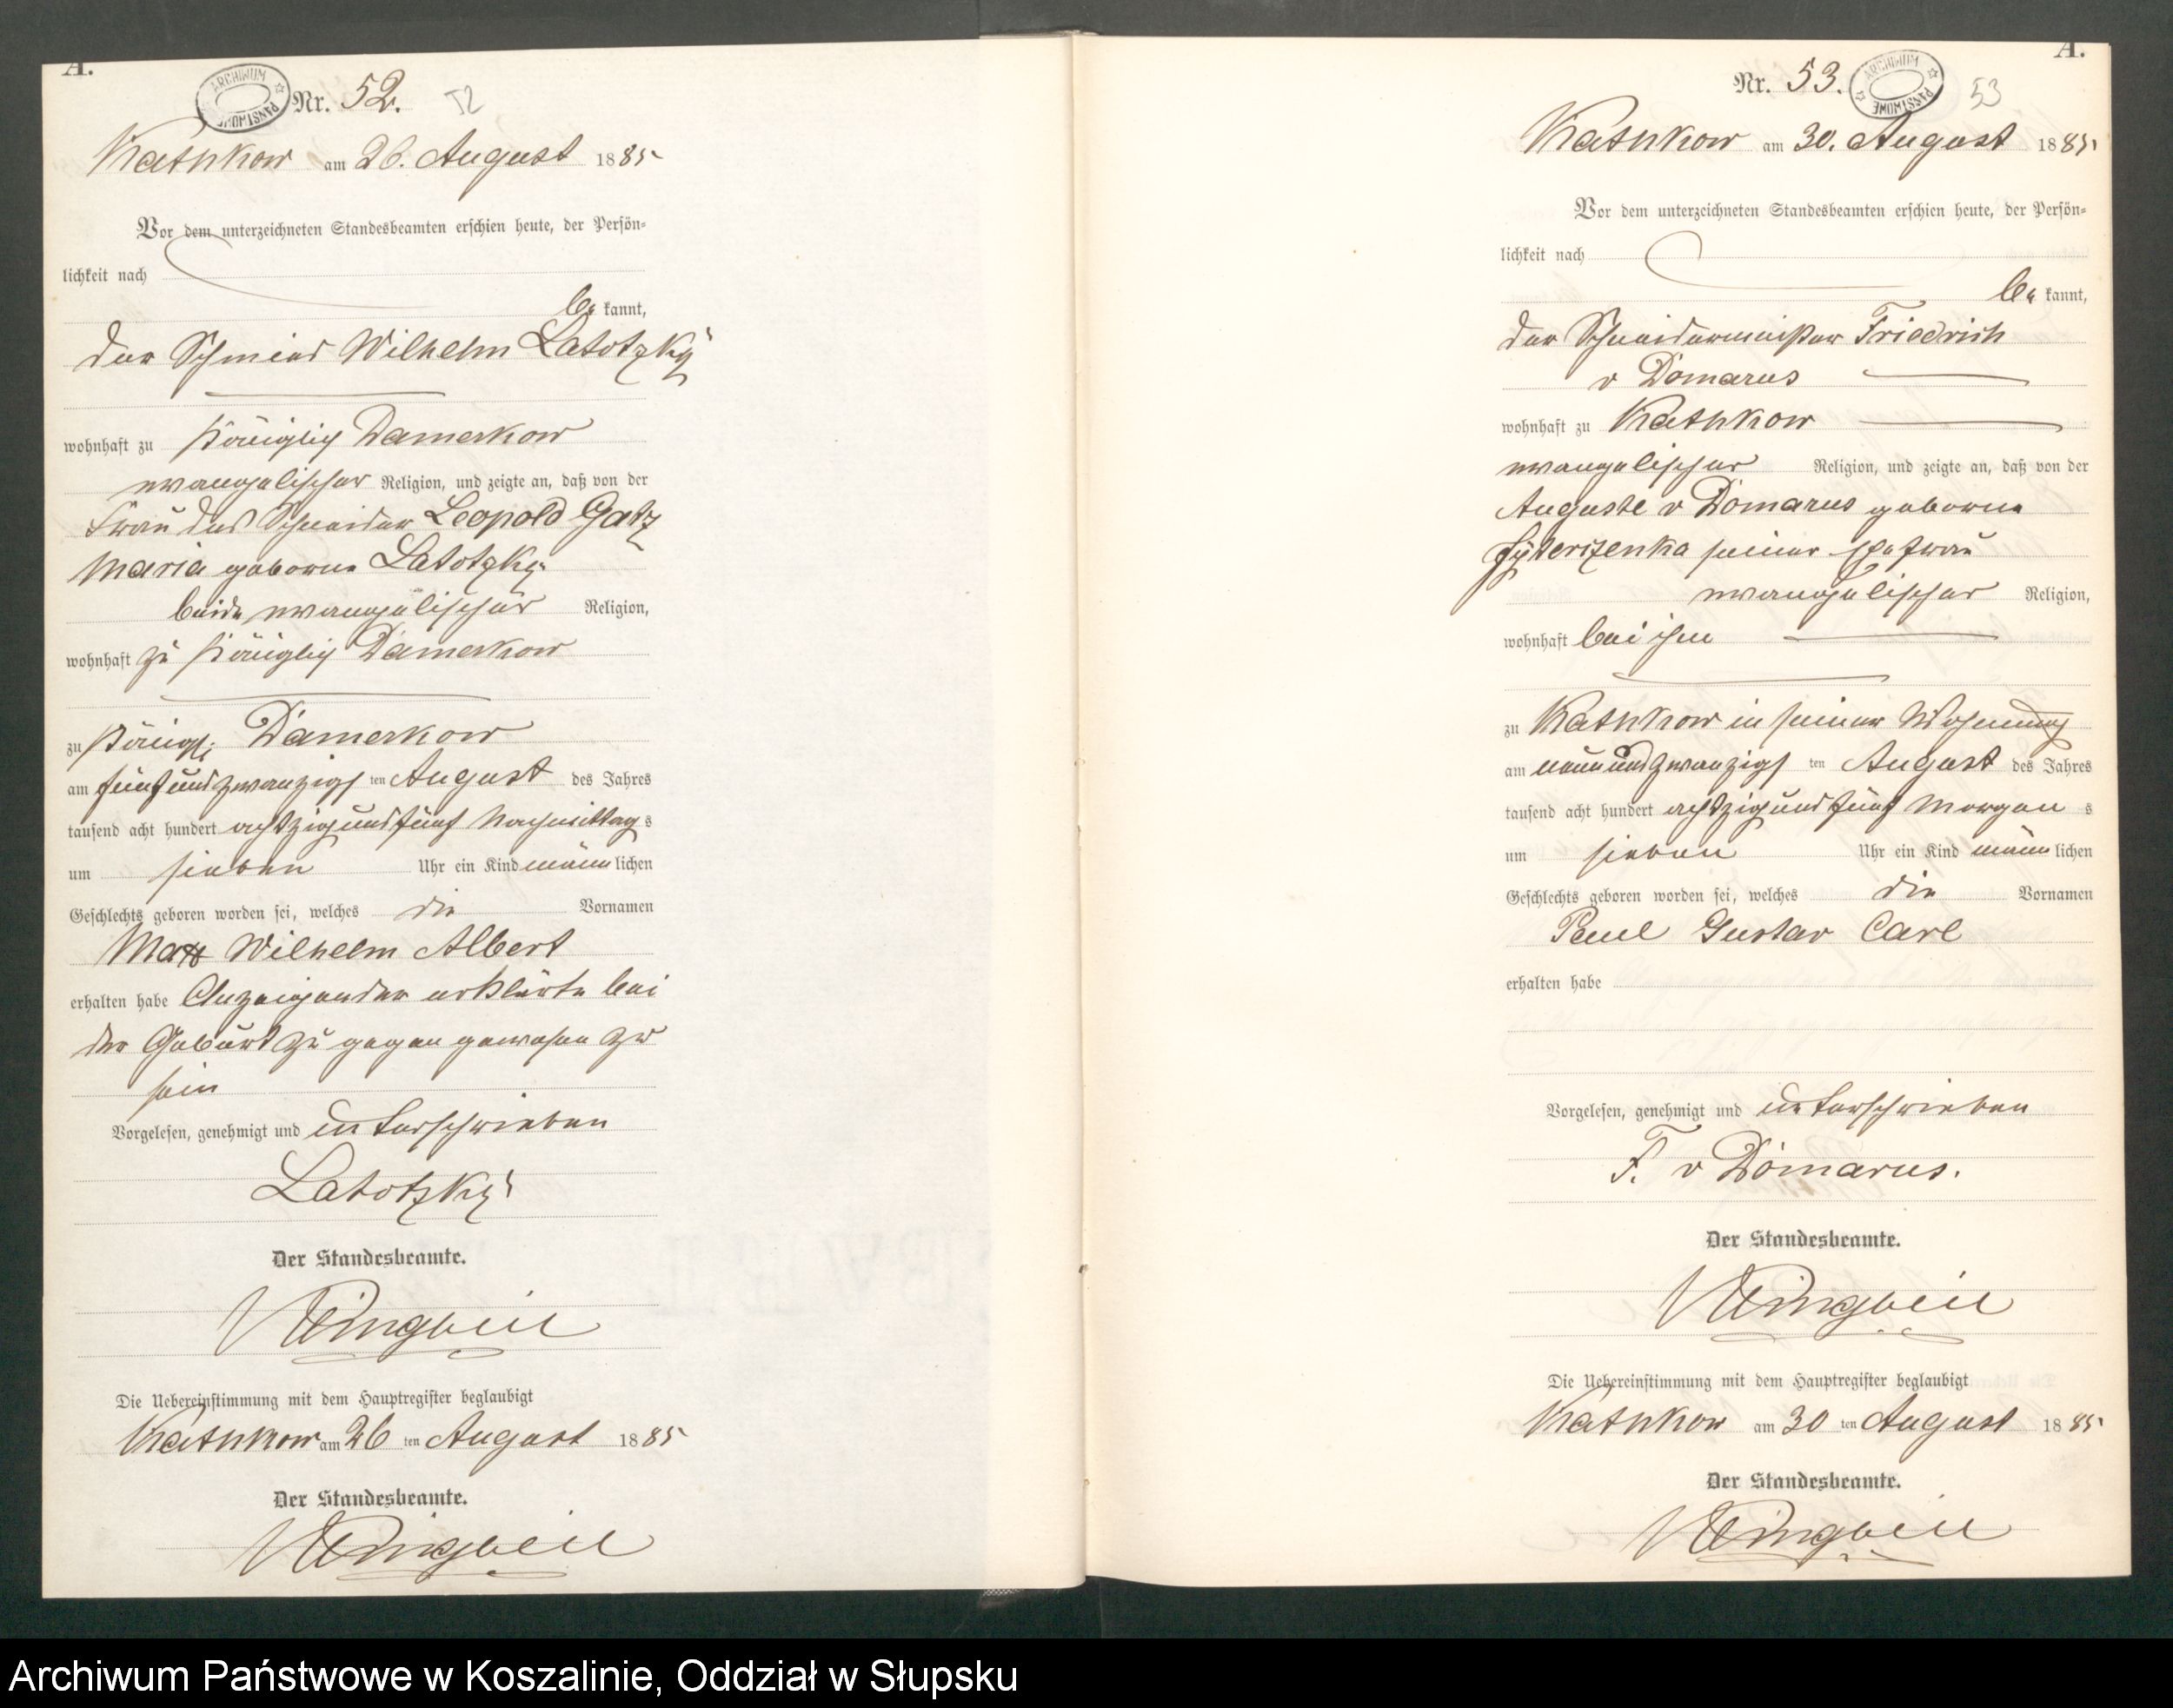 A.
ARCHIWUM PAŃSTWOWE
Nr. 52.
52
Kathkow am 26. August 1885
Vor dem unterzeichneten Standesbeamten erschien heute, der Persön-
lichkeit nach
be kannt,
der Schmied Wilhelm Latotzky
wohnhaft zu Königlich Damerkow
evangelischer Religion, und zeigte an, daß von der
Frau des Schneider Leopold Gatz
Maria geborne Latotzky
beide evangelischer Religion,
wohnhaft zu Königlich Damerkow
zu Königl. Damerkow
am fünf und zwanzigs ten August des Jahres
tausend acht hundert achtzig und fünf Nachmittag s
um sieben Uhr ein Kind männ lichen
Geschlechts geboren worden sei, welches die Vornamen
Max Wilhelm Albert
erhalten habe Anzeigender erklärte bei
der Geburt zu gegen gewesen zu
sein
Vorgelesen, genehmigt und unterschrieben
Latotzky
Der Standesbeamte.
Die Uebereinstimmung mit dem Hauptregister beglaubigt
Kathkow am 26 ten August 1885
Der Standesbeamte.
A.
Nr. 53.
ARCHIWUM PAŃSTWOWE
53
Kathkow am 30. August 1885
Vor dem unterzeichneten Standesbeamten erschien heute, der Persön-
lichkeit nach
be kannt,
der Schneidermeister Friedrich
v Domarus
wohnhaft zu Kathkow
evangelischer Religion, und zeigte an, daß von der
Auguste v Domarus geborne
seiner Ehefrau
evangelischer Religion,
wohnhaft bei ihm
zu Kathkow in seiner Wohnung
am neun und zwanzigs ten August des Jahres
tausend acht hundert achtzig und fünf Morgen s
um sieben Uhr ein Kind männ lichen
Geschlechts geboren worden sei, welches die Vornamen
Paul Gustav Carl
erhalten habe
Vorgelesen, genehmigt und unterschrieben
F. v Domarus.
Der Standesbeamte.
Die Uebereinstimmung mit dem Hauptregister beglaubigt
Kathkow am 30 ten August 1885
Der Standesbeamte.
Archiwum Państwowe w Koszalinie, Oddział w Słupsku